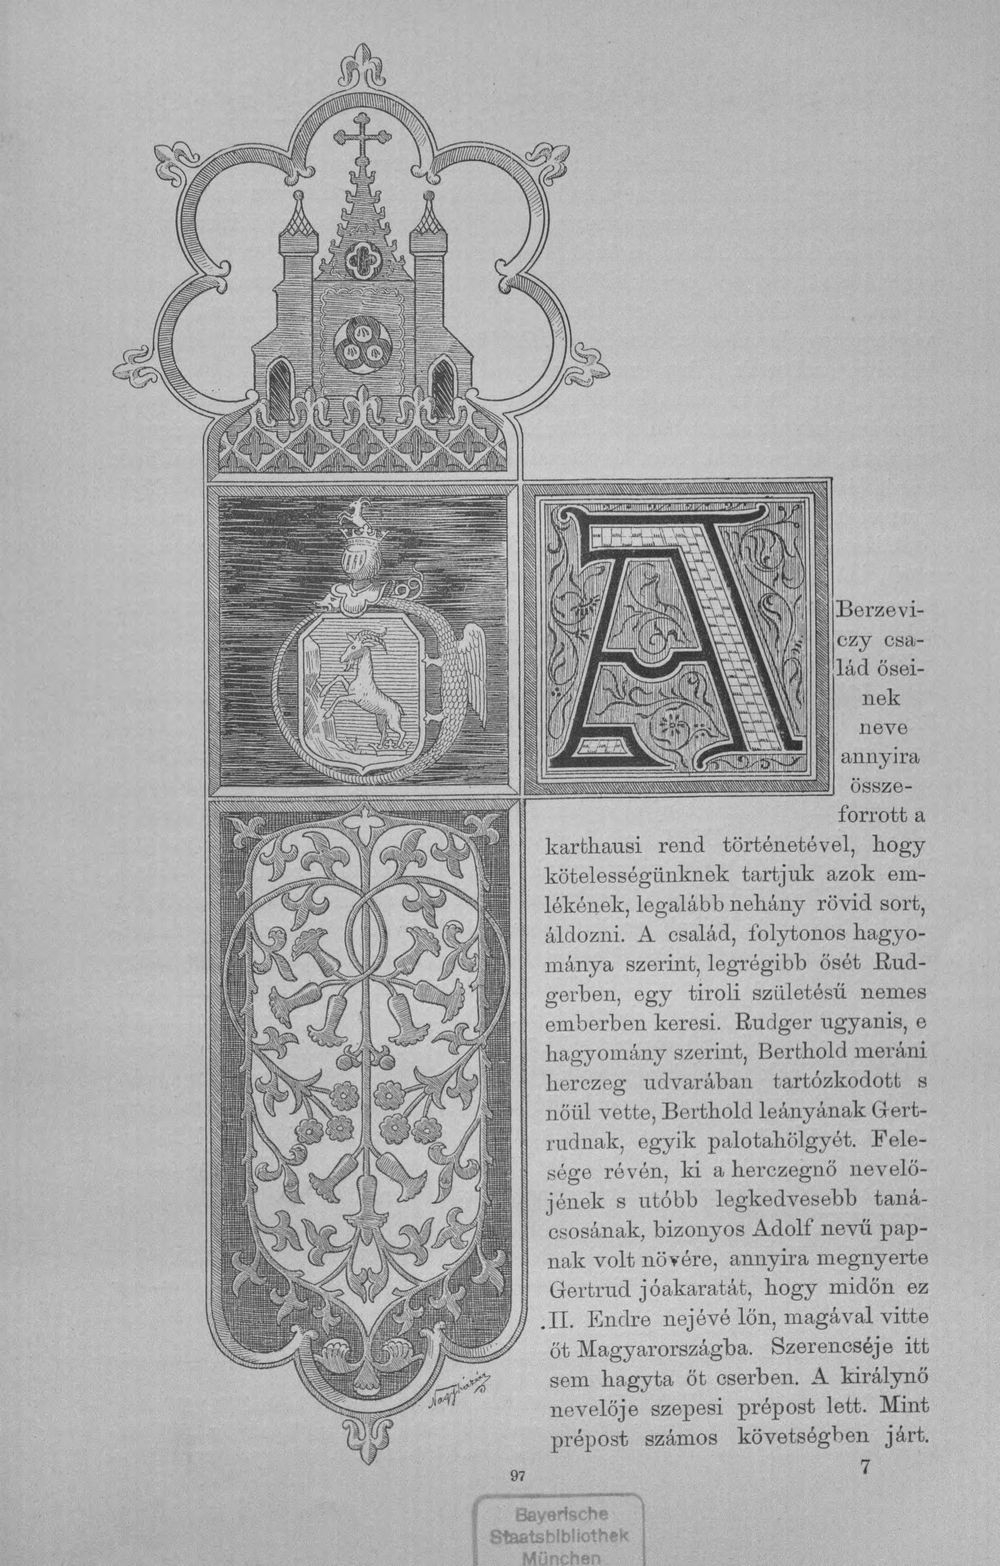 A Berzevi-
czy csa-
lád ősei-
nek
neve
annyira
össze-
forrott a
karthausi rend történetével, hogy
kötelességünknek tartjuk azok em-
lékének, legalább nehány rövid sort,
áldozni. A család, folytonos hagyo-
mánya szerint, legrégibb ősét Rud-
gerben, egy tiroli születésű nemes
emberben keresi. Rudger ugyanis, e
hagyomány szerint, Berthold meráni
herczeg udvarában tartózkodott s
nőül vette, Berthold leányának Gert-
rudnak, egyik palotahölgyét. Fele-
sége révén, ki a herczegnő nevelő-
jének s utóbb legkedvesebb taná-
csosának, bizonyos Adolf nevű pap-
nak volt növére, annyira megnyerte
Gertrud jóakaratát, hogy midőn ez
.II. Endre nejévé lőn, magával vitte
őt Magyarországba. Szerencséje itt
sem hagyta őt cserben. A királynő
nevelője szepesi prépost lett. Mint
prépost számos követségben járt.
97
7
Bayerische
Staatsbibliothek
München